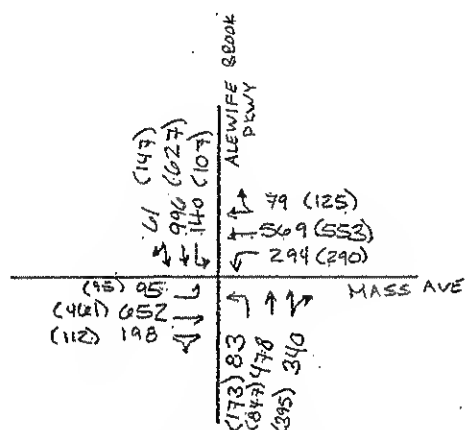 ALEWIFE BROOK
PKWY
61 (147)
996 (627)
140 (107)
79 (125)
569 (553)
294 (290)
MASS AVE
(95) 95
(461) 652
(112) 198
(173) 83
(847) 478
(395) 340